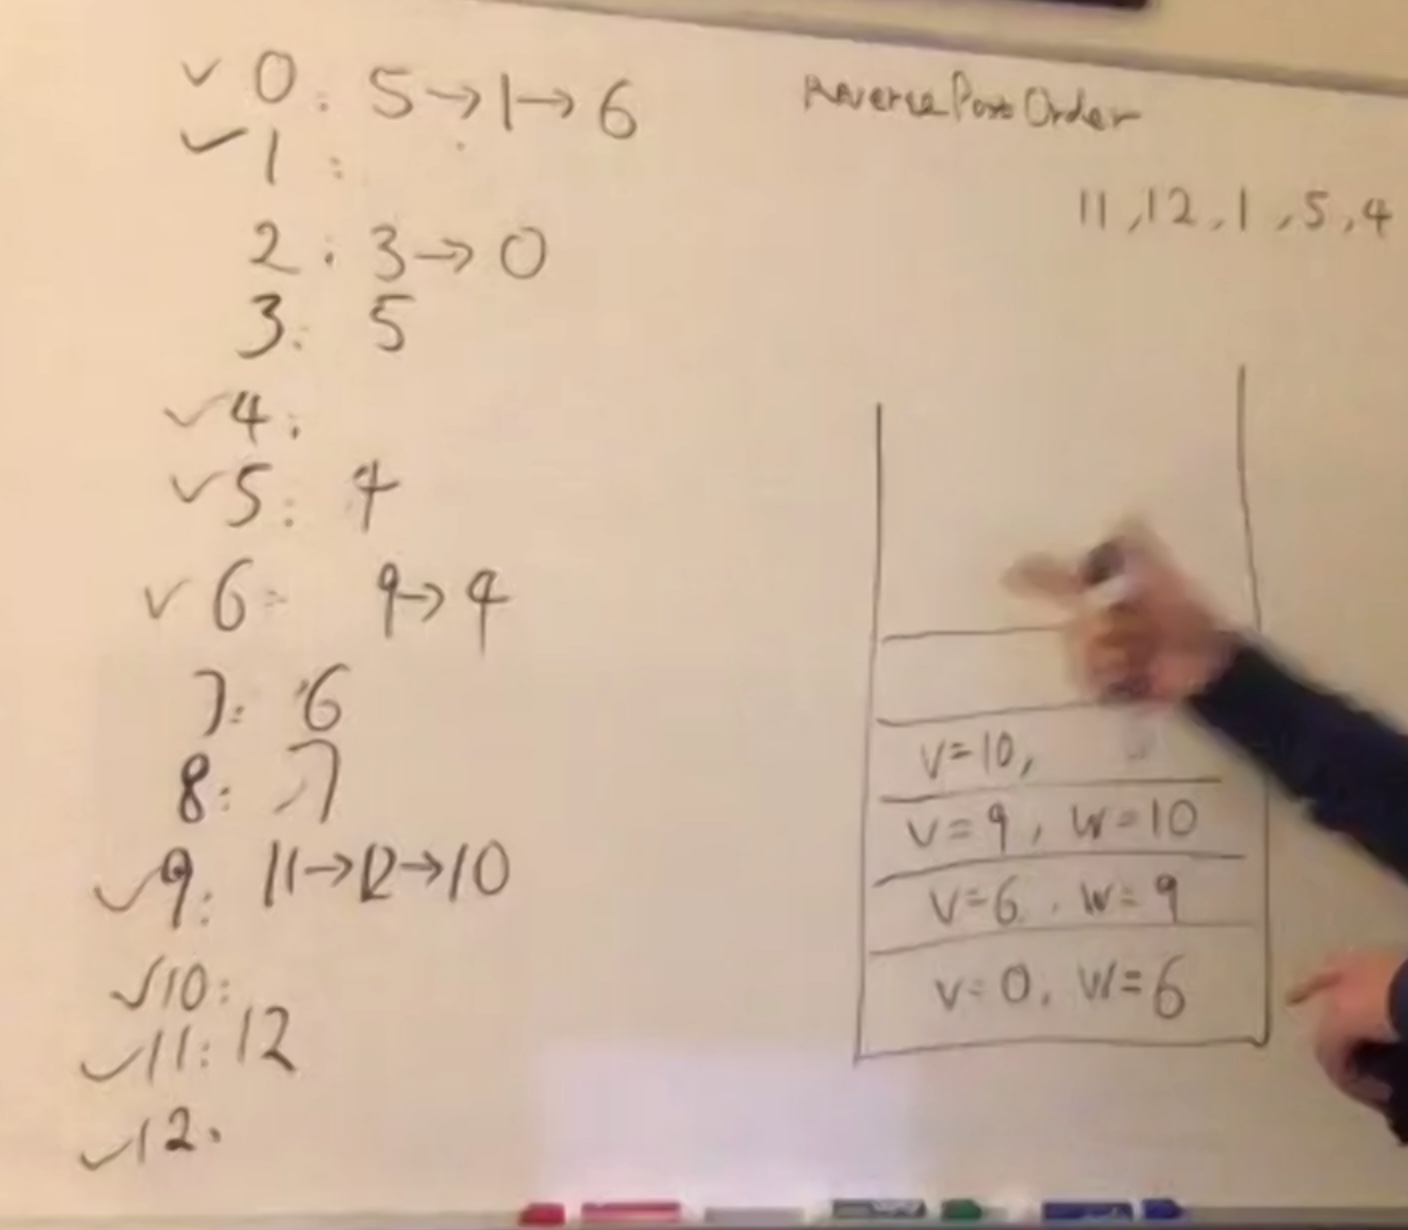 ✓ 0: 5→1→6
✓ 1:
2: 3→0
3: 5
✓ 4:
✓ 5: 4
✓ 6: 9→4
7: 6
8: 7
✓ 9: 11→12→10
✓ 10:
✓ 11: 12
✓ 12.
Reverse Post Order
11, 12, 1, 5, 4
v=10,
v=9, w=10
v=6, w=9
v=0, w=6